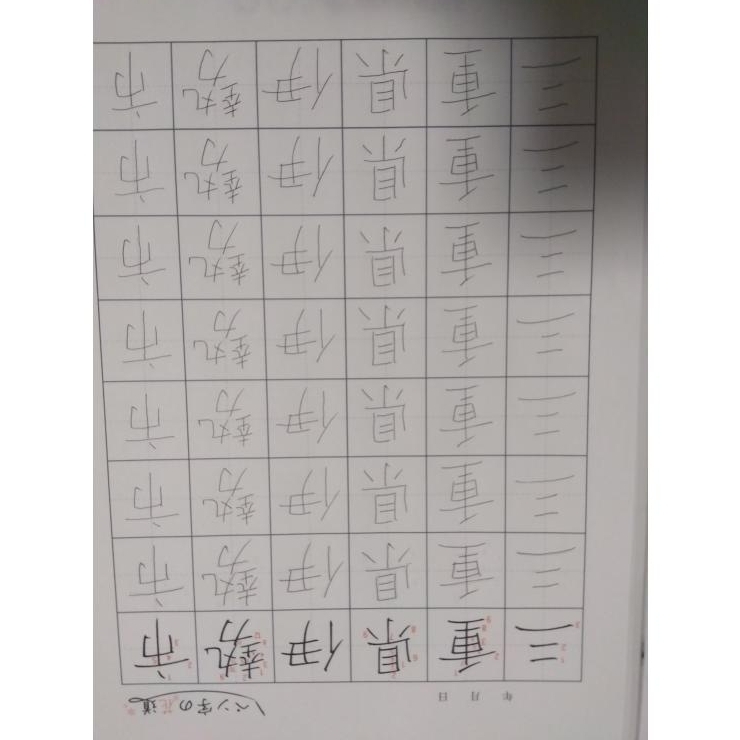 年 月 日
ペン字の花道
三重県伊勢市
三重県伊勢市
三重県伊勢市
三重県伊勢市
三重県伊勢市
三重県伊勢市
三重県伊勢市
三重県伊勢市